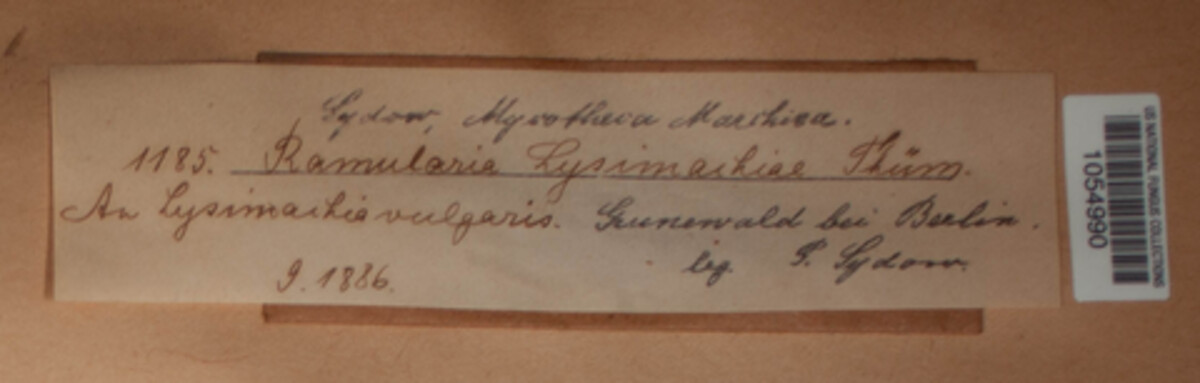 Sydow, Mycotheca Marchica.
1185. Ramularia Lysimachiae Thüm.
An Lysimachia vulgaris. Grunewald bei Berlin.
9. 1886. leg. P. Sydow.
US NATIONAL FUNGUS COLLECTIONS
1054990